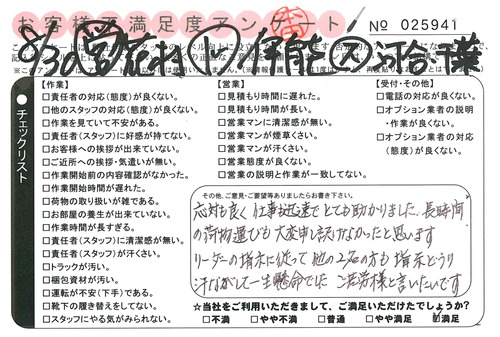 お客様不満足度アンケート
No 025941
チェックリスト
【作業】
□責任者の対応(態度)が良くない。
□他のスタッフの対応(態度)が良くない。
□作業を見ていて不安がある。
□責任者(スタッフ)に好感が持てない。
□お客様への挨拶が出来ていない。
□ご近所への挨拶・気遣いが無い。
□作業開始前の内容確認がなかった。
□作業開始時間が遅れた。
□荷物の取り扱いが雑である。
□お部屋の養生が出来ていない。
□作業時間が長すぎる。
□責任者(スタッフ)に清潔感が無い。
□責任者(スタッフ)が汗くさい。
□トラックが汚い。
□梱包資材が汚い。
□運転が不安(下手)である。
□靴下の履き替えをしてない。
□スタッフにやる気がみられない。
【営業】
□見積もり時間に遅れた。
□見積もり時間が長い。
□営業マンに清潔感が無い。
□営業マンが煙草くさい。
□営業マンが汗くさい。
□営業態度が良くない。
□営業の説明と作業が一致してない。
【受付・その他】
□電話の対応が良くない。
□オプション業者の説明
・作業が良くない。
□オプション業者の対応
(態度)が良くない。
その他、ご意見・ご要望等ありましたらお書き下さい。
応対も良く仕事も迅速でとても助かりました。長時間
の荷物運びも大変申し訳けなかったと思います
リーダーの指示に従って他の2名の方も指示どうり
汗ながして一生懸命でした ご苦労様と言いたいです
☆当社をご利用いただきまして、ご満足いただけたでしょうか?
□不満 □やや不満 □普通 □やや満足 ☑満足